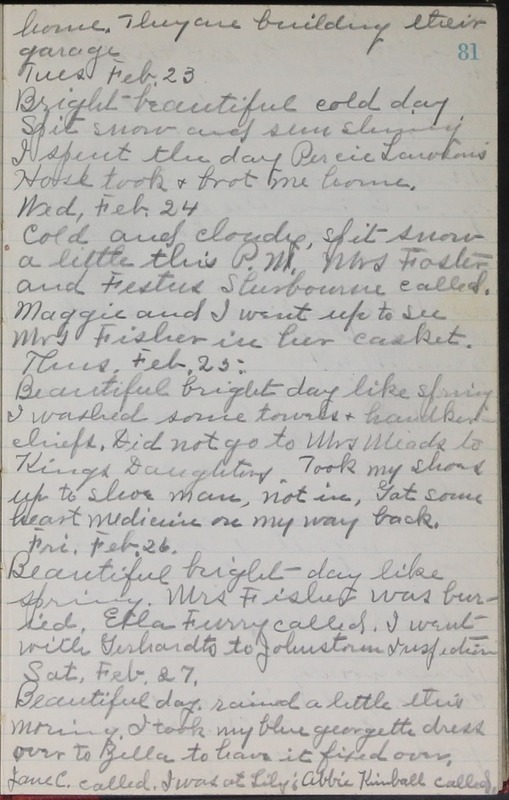 home. They are building their
garage
81
Tues Feb. 23
Bright beautiful cold day
Spit snow and sun shining
I spent the day Percie Lawhons
Hosk took & brot me home.
Wed, Feb. 24
Cold and cloudy, spit snow
a little this P.M. Mrs Foster
and Festus Sherbourne called.
Maggie and I went up to see
Mrs Fisher in her casket.
Thus. Feb. 25.
Beautiful bright day like spring
I washed some towels & handker-
chiefs. Did not go to Mrs Meads to
Kings Daughters Took my shoes
up to shoe man, not in, Got some
heart medicine on my way back.
Fri. Feb. 26.
Beautiful bright day like
spring. Mrs Fisher was bur-
ied. Etla Furry called. I went
with Gerhardts to Johnstown Inspection
Sat. Feb. 27.
Beautiful day. rained a little this
morning. I took my blue georgette dress
over to Zella to have it fixed over.
Jane C. called. I was at Lily's Abbie Kimball called.